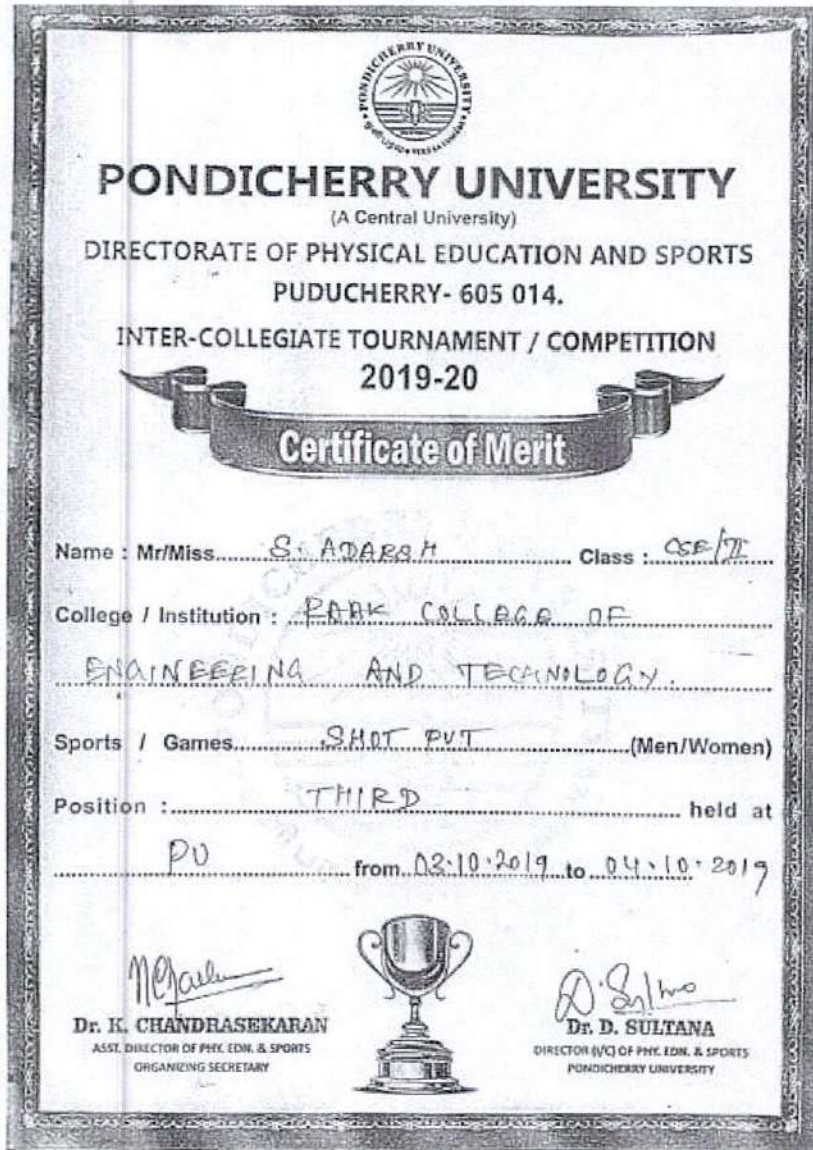 PONDICHERRY UNIVERSITY
PONDICHERRY UNIVERSITY
(A Central University)
DIRECTORATE OF PHYSICAL EDUCATION AND SPORTS
PUDUCHERRY- 605 014.
INTER-COLLEGIATE TOURNAMENT / COMPETITION
2019-20
Certificate of Merit
Name : Mr/Miss........S. ADARSH........ Class : CSE/II
College / Institution : RAAK COLLEGE OF
ENGINEERING AND TECHNOLOGY.
Sports / Games........SHOT PUT........(Men/Women)
Position :........THIRD........ held at
PU ........ from 03.10.2019 to 04.10.2019
Dr. K. CHANDRASEKARAN Dr. D. SULTANA
ASST. DIRECTOR OF PHY. EDN. & SPORTS DIRECTOR (I/C) OF PHY. EDN. & SPORTS
ORGANIZING SECRETARY PONDICHERRY UNIVERSITY